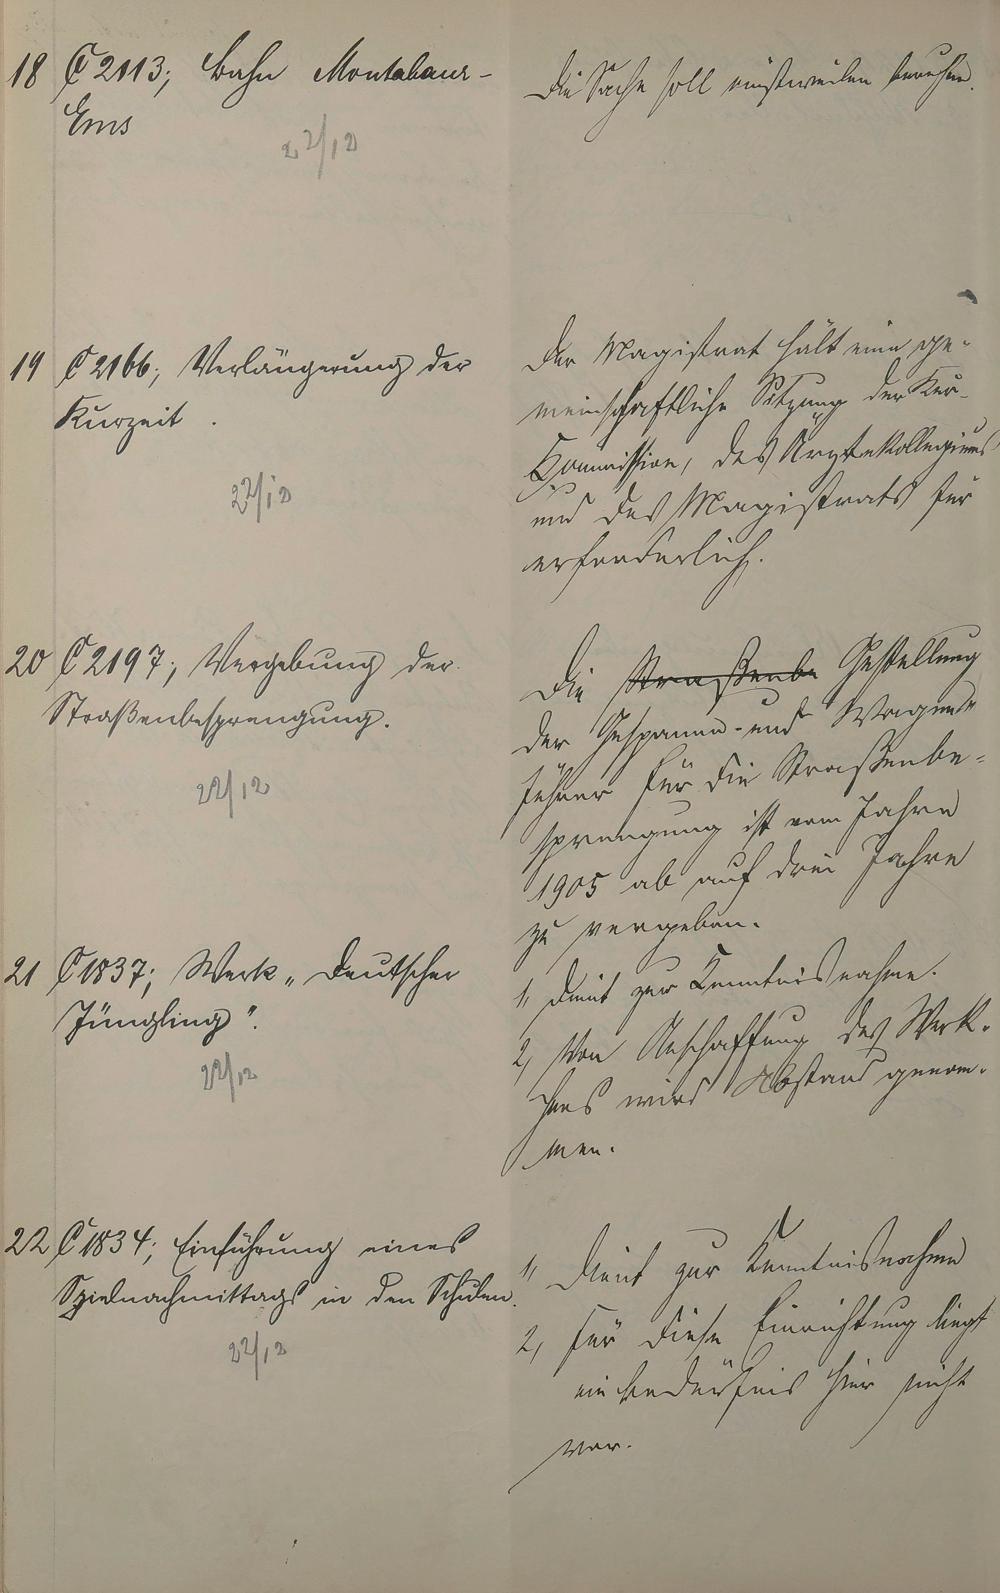 18 C 2113; Bahn Montabaur-
Ems
22/12
Die Sache soll einstweilen beruhen.
19 C 2166; Verlängerung der
Kurzeit.
22/12
Der Magistrat hält eine ge-
meinschaftliche Sitzung der Kur-
Kommission, des Ärztekollegiums
und des Magistrats für
erforderlich.
20 C 2197; Vergebung der
Straßenbesprengung.
22/12
Die Straßenbe Gestellung
der Gespanne- und Wagen-
führer für die Straßenbe-
sprengung ist vom Jahre
1905 ab auf drei Jahre
zu vergeben.
21 C 1837; Werk „Deutscher
Jüngling".
22/12
1, Dient zur Kenntnisnahme.
2, Von Anschaffung des Werk-
chens wird Abstand genom-
men.
22 C 1834; Einführung eines
Spielnachmittags in den Schulen.
22/12
1, Dient zur Kenntnisnahme
2, Für diese Einrichtung liegt
ein Bedürfnis hier nicht
vor.